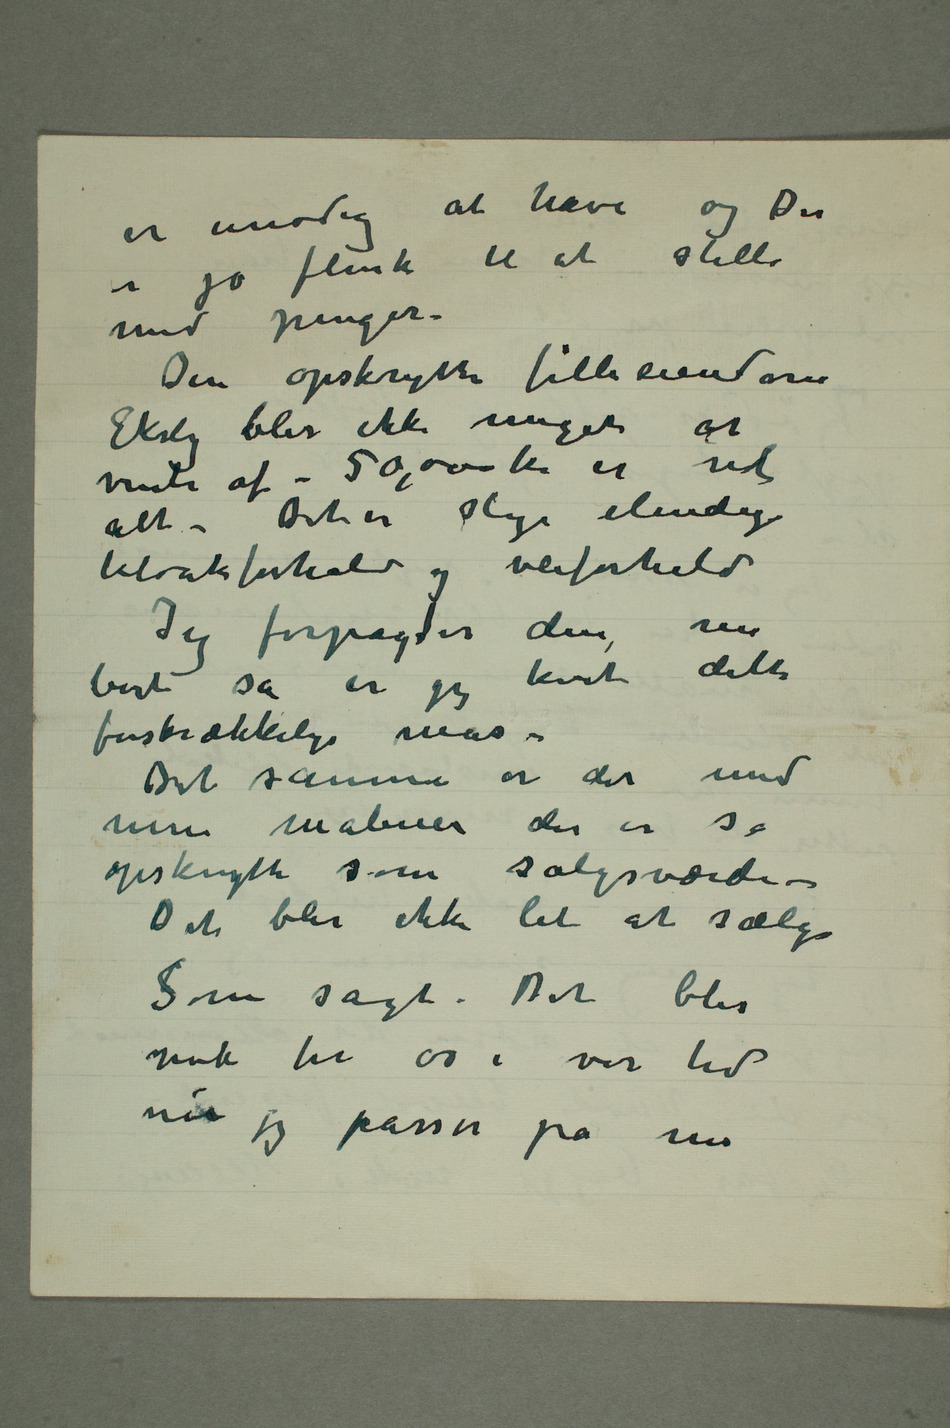 er unødig at have og Du
er jo flink til at stille
med penger –
Den opskrytte filleeiendom
Ekely blir ikke meget at
vente af – 50,000 kr er vel
alt – Det er slige elendige
kloakforhold og veiforhold
Jeg forpagter den nu
bort så er jeg kvit dette
forskrækkelige mas –
Det samme er det med
mine malerier der er så
opskrytte som salgsværdi –
Det blir ikke let at sælge
Som sagt – Det blir
nok for os i vor tid
når jeg passer på nu